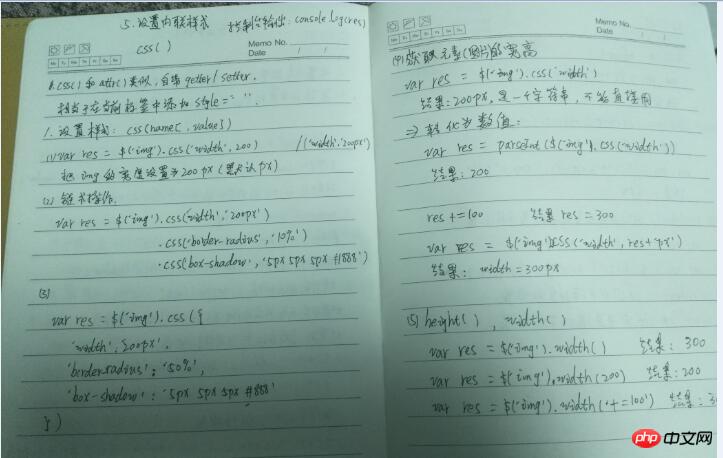 5.设置内联样式 控制台输出: console.log(res)
css( )
Memo No.
Date / /
Mo Tu We Th Fr Sa Su
css() 和 attr() 类似, 自带 getter/setter.
相当于在当前标签中添加 style=" ".
1. 设置样式: css(name[, value])
(1) var res = $('img').css('width', 200) /('width', '200px')
把 img 的宽度设置为 200 px (默认 px)
(2) 链式操作.
var res = $('img').css('width', '200px')
.css('border-radius', '10%')
.css('box-shadow', '5px 5px 5px #888')
(3)
var res = $('img').css({
'width': 200px',
'border-radius': '50%',
'box-shadow': '5px 5px 5px #888'
})
Memo No.
Date / /
Mo Tu We Th Fr Sa Su
(4) 获取元素(图片)的宽高
var res = $('img').css('width')
结果: 200px, 是一个字符串, 不能直接用
⇒ 转化为数值:
var res = parseInt($('img').css('width'))
结果: 200
res += 100 结果 res = 300
var res = $('img').css('width', res+'px')
结果: width = 300px
(5) height( ) , width( )
var res = $('img').width( ) 结果: 300
var res = $('img').width(200) 结果: 200
var res = $('img').width('+=100') 结果: 3
php 中文网